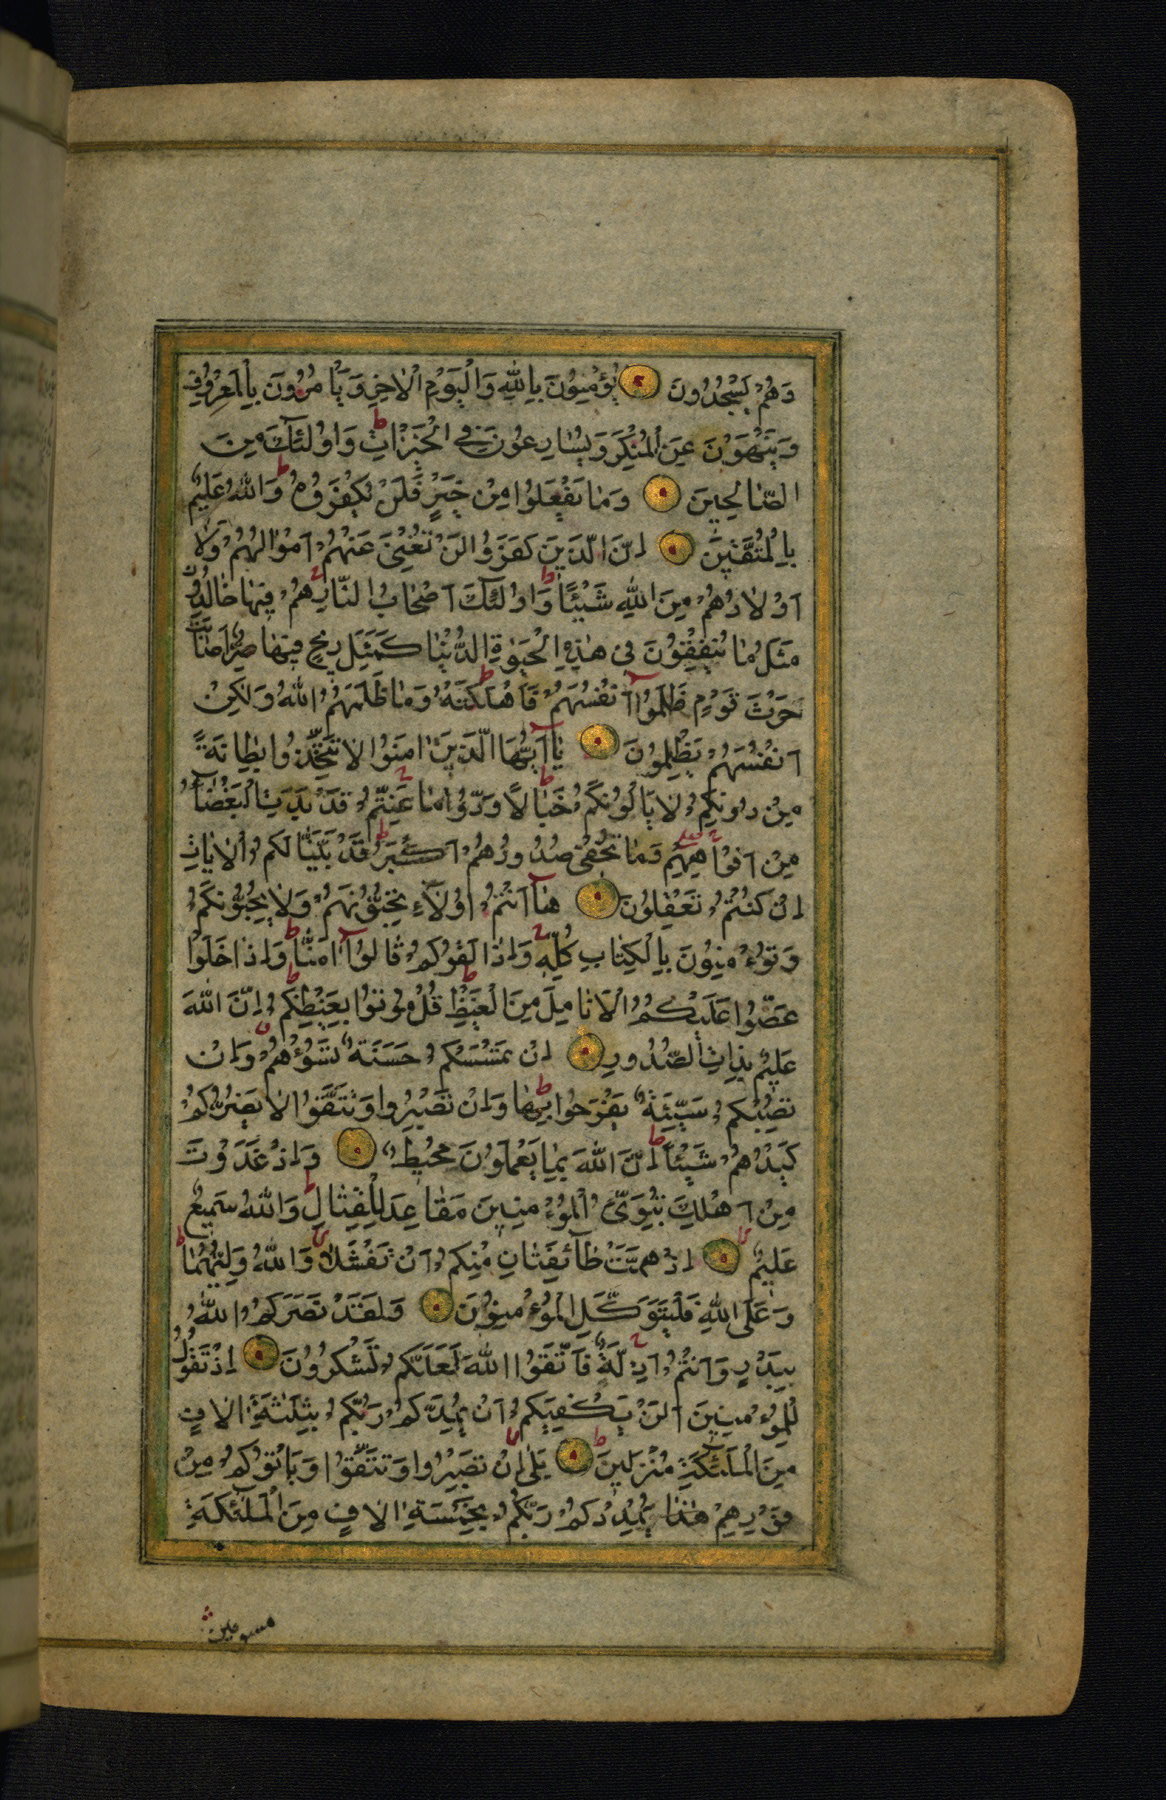 وَهُمْ يَسْجُدُونَ يُؤْمِنُونَ بِاللّٰهِ وَالْيَوْمِ الْاٰخِرِ وَيَأْمُرُونَ بِالْمَعْرُوفِ
وَيَنْهَوْنَ عَنِ الْمُنْكَرِ وَيُسَارِعُونَ فِي الْخَيْرَاتِ ط وَاُولٰئِكَ مِنَ
الصَّالِحِينَ وَمَا يَفْعَلُوا مِنْ خَيْرٍ فَلَنْ يُكْفَرُوهُ ط وَاللّٰهُ عَلِيمٌ
بِالْمُتَّقِينَ اِنَّ الَّذِينَ كَفَرُوا لَنْ تُغْنِيَ عَنْهُمْ اَمْوَالُهُمْ وَلَا
اَوْلَادُهُمْ مِنَ اللّٰهِ شَيْئًا ط وَاُولٰئِكَ اَصْحَابُ النَّارِ هُمْ فِيهَا خَالِدُونَ
مَثَلُ مَا يُنْفِقُونَ فِي هٰذِهِ الْحَيٰوةِ الدُّنْيَا كَمَثَلِ رِيحٍ فِيهَا صِرٌّ اَصَابَتْ
حَرْثَ قَوْمٍ ظَلَمُوا اَنْفُسَهُمْ فَاَهْلَكَتْهُ ط وَمَا ظَلَمَهُمُ اللّٰهُ وَلٰكِنْ
اَنْفُسَهُمْ يَظْلِمُونَ يَا اَيُّهَا الَّذِينَ اٰمَنُوا لَا تَتَّخِذُوا بِطَانَةً
مِنْ دُونِكُمْ لَا يَأْلُونَكُمْ خَبَالًا ط وَدُّوا مَا عَنِتُّمْ قَدْ بَدَتِ الْبَغْضَاءُ
مِنْ اَفْوَاهِهِمْ وَمَا تُخْفِي صُدُورُهُمْ اَكْبَرُ ط قَدْ بَيَّنَّا لَكُمُ الْاٰيَاتِ
اِنْ كُنْتُمْ تَعْقِلُونَ هَا اَنْتُمْ اُولَاءِ تُحِبُّونَهُمْ وَلَا يُحِبُّونَكُمْ
وَتُؤْمِنُونَ بِالْكِتَابِ كُلِّهِ وَاِذَا لَقُوكُمْ قَالُوا اٰمَنَّا ط وَاِذَا خَلَوْا
عَضُّوا عَلَيْكُمُ الْاَنَامِلَ مِنَ الْغَيْظِ ط قُلْ مُوتُوا بِغَيْظِكُمْ ط اِنَّ اللّٰهَ
عَلِيمٌ بِذَاتِ الصُّدُورِ اِنْ تَمْسَسْكُمْ حَسَنَةٌ تَسُؤْهُمْ وَاِنْ
تُصِبْكُمْ سَيِّئَةٌ يَفْرَحُوا بِهَا ط وَاِنْ تَصْبِرُوا وَتَتَّقُوا لَا يَضُرُّكُمْ
كَيْدُهُمْ شَيْئًا ط اِنَّ اللّٰهَ بِمَا يَعْمَلُونَ مُحِيطٌ وَاِذْ غَدَوْتَ
مِنْ اَهْلِكَ تُبَوِّئُ الْمُؤْمِنِينَ مَقَاعِدَ لِلْقِتَالِ ط وَاللّٰهُ سَمِيعٌ
عَلِيمٌ اِذْ هَمَّتْ طَائِفَتَانِ مِنْكُمْ اَنْ تَفْشَلَا وَاللّٰهُ وَلِيُّهُمَا ط
وَعَلَى اللّٰهِ فَلْيَتَوَكَّلِ الْمُؤْمِنُونَ وَلَقَدْ نَصَرَكُمُ اللّٰهُ
بِبَدْرٍ وَاَنْتُمْ اَذِلَّةٌ فَاتَّقُوا اللّٰهَ لَعَلَّكُمْ تَشْكُرُونَ اِذْ تَقُولُ
لِلْمُؤْمِنِينَ اَلَنْ يَكْفِيَكُمْ اَنْ يُمِدَّكُمْ رَبُّكُمْ بِثَلٰثَةِ اٰلَافٍ
مِنَ الْمَلٰئِكَةِ مُنْزَلِينَ ط بَلٰى اِنْ تَصْبِرُوا وَتَتَّقُوا وَيَأْتُوكُمْ مِنْ
فَوْرِهِمْ هٰذَا يُمْدِدْكُمْ رَبُّكُمْ بِخَمْسَةِ اٰلَافٍ مِنَ الْمَلٰئِكَةِ
مسومين